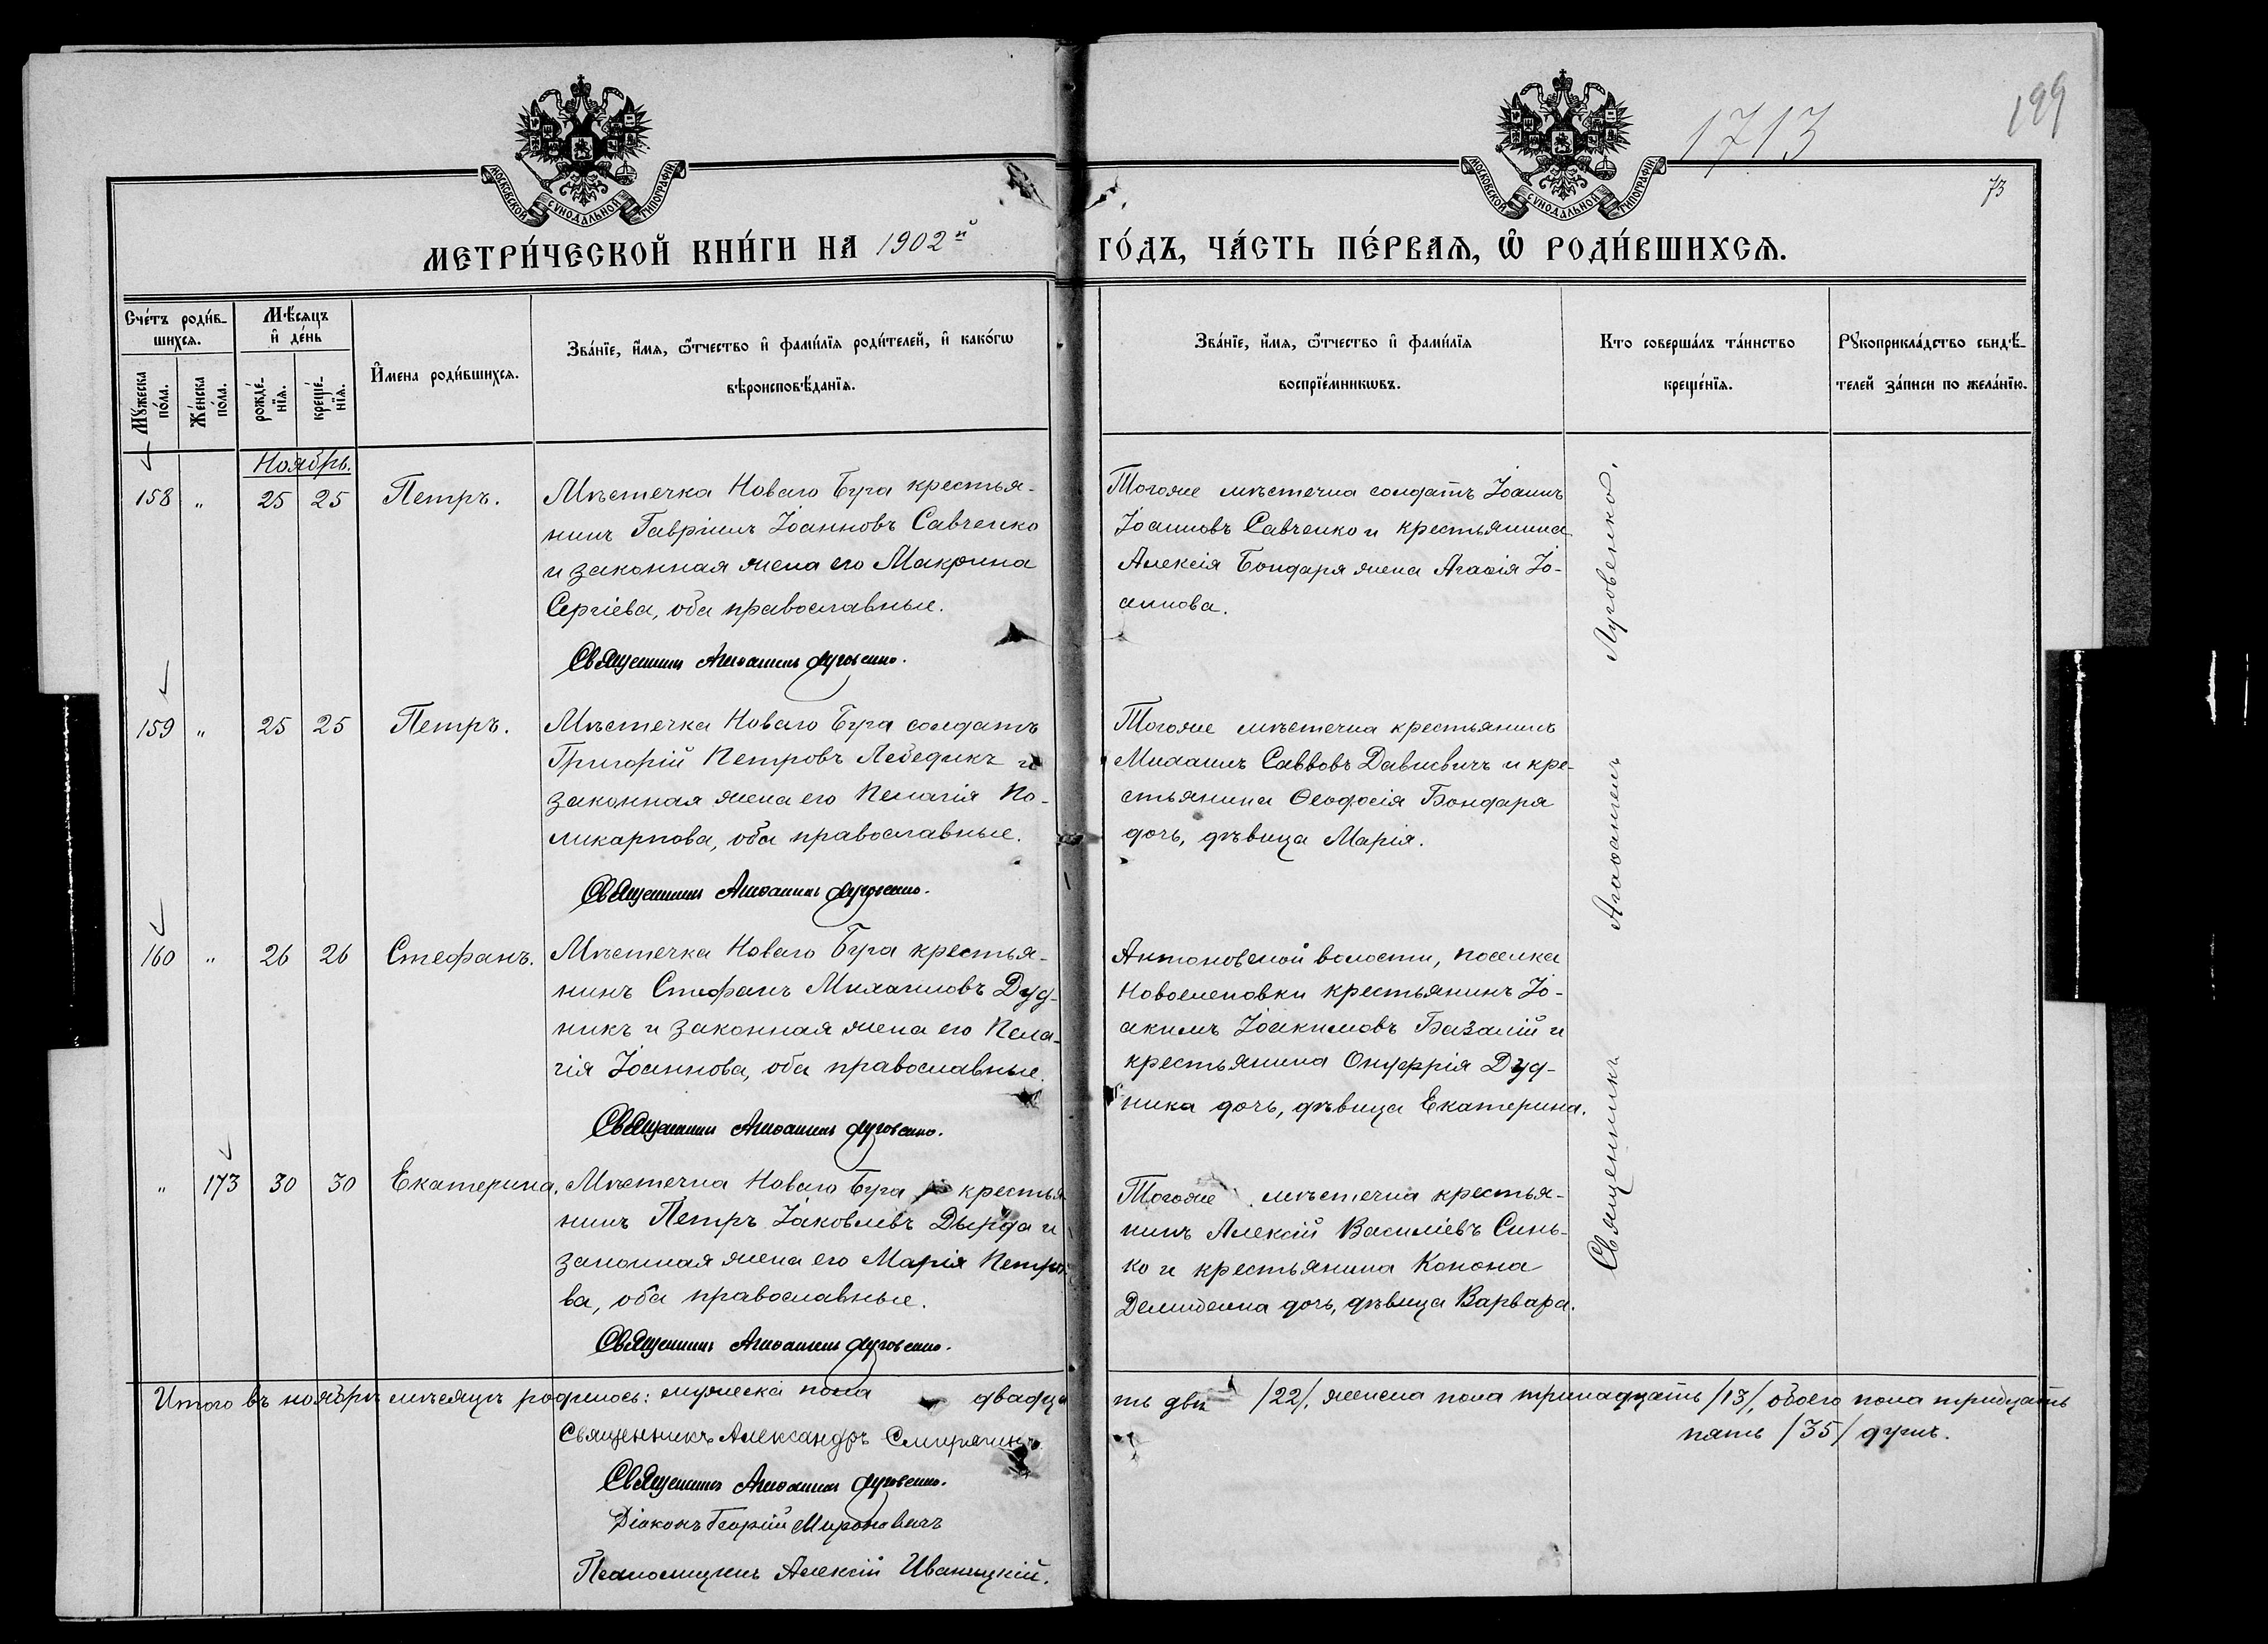 1713
199
73
МОСКОВСКОЙ СѴНОДАЛЬНОЙ ТИПОГРАФІИ
МОСКОВСКОЙ СѴНОДАЛЬНОЙ ТИПОГРАФІИ
МЕТРИ́ЧЕСКОЙ КНИ́ГИ НА 1902й ГО́ДЪ, ЧА́СТЬ ПЕ́РВАѦ, Ѡ҆ РОДИ́ВШИХСѦ.
Сче́тъ роди́в-
шихсѧ.
Мꙋ́жеска
по́ла.
Же́нска
по́ла.
Мѣ́сѧцъ
и҆ де́нь
рожде́-
нїѧ.
креще́-
нїѧ.
И҆мена роди́вшихсѧ.
Зва́нїе, и҆́мѧ, ѻ҆́тчество и҆ фами́лїѧ роди́телей, и҆ како́гѡ
вѣроисповѣ́данїѧ.
Зва́нїе, и҆́мѧ, ѻ҆́тчество и҆ фами́лїѧ
воспрїе́мникѡвъ.
Кто соверша́лъ та́инство
креще́нїѧ.
Рꙋкоприкла́дство свидѣ́-
телей за́писи по жела́нїю.
Ноябрь.
158 " 25 25 Петръ.
Мѣстечка Новаго Буга крестья-
нинъ Гавріилъ Іоанновъ Савченко
и законная жена его Макрина
Сергіева, оба православные.
Священникъ Агаѳангелъ Луговенко.
Тогоже мѣстечка солдатъ Іоаннъ
Іоанновъ Савченко и крестьянина
Алексія Бондаря жена Агаѳія Іо-
аннова.
159 " 25 25 Петръ.
Мѣстечка Новаго Буга солдатъ
Григорій Петровъ Лебедикъ и
законная жена его Пелагія По-
ликарпова, оба православные.
Священникъ Агаѳангелъ Луговенко.
Тогоже мѣстечка крестьянинъ
Михаилъ Саввовъ Давиевичъ и кре-
стьянина Ѳеодосія Бондаря
дочь, дѣвица Марія.
160 " 26 26 Стефанъ.
Мѣстечка Новаго Буга крестья-
нинъ Стефанъ Михаиловъ Дуд-
никъ и законная жена его Пела-
гія Іоаннова, оба православные.
Священникъ Агаѳангелъ Луговенко.
Антоновской волости, поселка
Новоеленовки крестьянинъ Іо-
акимъ Іоакимовъ Базалій и
крестьянина Онуфрія Дуд-
ника дочь, дѣвица Екатерина.
" 173 30 30 Екатерина.
Мѣстечка Новаго Буга крестья
нинъ Петръ Іаковлевъ Дырда и
законная жена его Марія Петро-
ва, оба православные.
Священникъ Агаѳангелъ Луговенко.
Тогоже мѣстечка крестья-
нинъ Алексій Василіевъ Синь-
ко и крестьянина Конона
Демиденка дочь, дѣвица Варвара.
Священникъ Агаѳангелъ Луговенко.
Итого въ ноябрѣ мѣсяцѣ родилось: мужеска пола двадца
ть два /22/, женска пола тринадцать /13/, обоего пола тридцать
пять /35/ душъ.
Священникъ Александръ Смирягинъ
Священникъ Агаѳангелъ Луговенко.
Діаконъ Георгій Мироновичъ
Псаломщикъ Алексій Иваницкій.